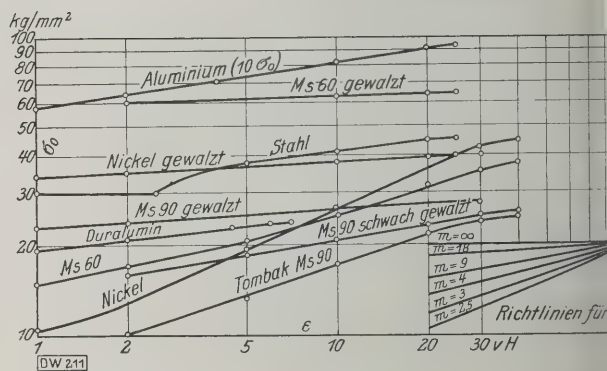 kg/mm²
100
90
80
70
60
50
40
30
20
10
σ₀
Aluminium (10 σ₀)
Ms 60 gewalzt
Stahl
Nickel gewalzt
Ms 90 gewalzt
Duralumin
Ms 90 schwach gewalzt
Ms 60
Nickel
Tombak Ms 90
m=∞
m=18
m=9
m=4
m=3
m=2,5
Richtlinien für
ε
1
2
5
10
20
30 vH
DW 211